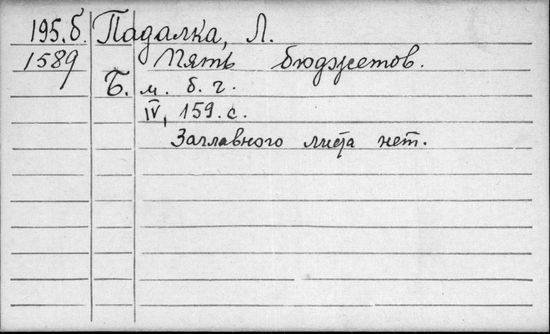 195.б. Падалка, Л.
1589 Пять бюджетов.
Б. м. б. г.
IV, 159. с.
Заглавного листа нет.